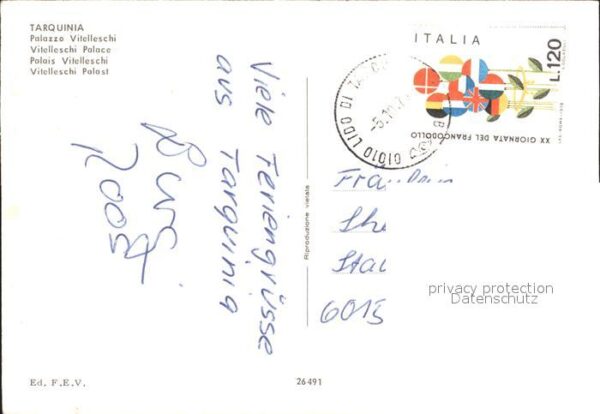 TARQUINIA
Palazzo Vitelleschi
Vitelleschi Palace
Palais Vitelleschi
Vitelleschi Palast
Viele Feriengrüsse
aus Tarquinia
ITALIA
L.120
XX GIORNATA DEL FRANCOBOLLO
01010 LIDO DI
-5.11.7
Riproduzione vietata
Frau
6015
privacy protection
Datenschutz
Ed. F.E.V.
26491